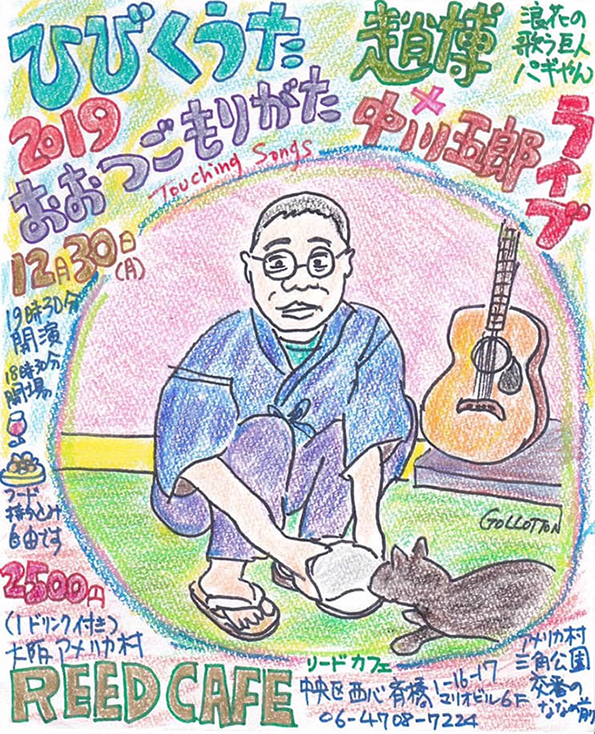 ひびくうた
趙博
浪花の
歌う巨人
パギやん
2019
おおつごもりがた
×
中川五郎
ライブ
Touching Songs
12月30日
(月)
19時30分
開演
18時30分
開場
フード
持ちこみ
自由です
2500円
(1ドリンク付き)
大阪アメリカ村
REED CAFE
GOLLOTTON
リードカフェ
中央区西心斎橋1-16-17
マリオビル6F
06-4708-7224
アメリカ村
三角公園
交番の
ななめ前